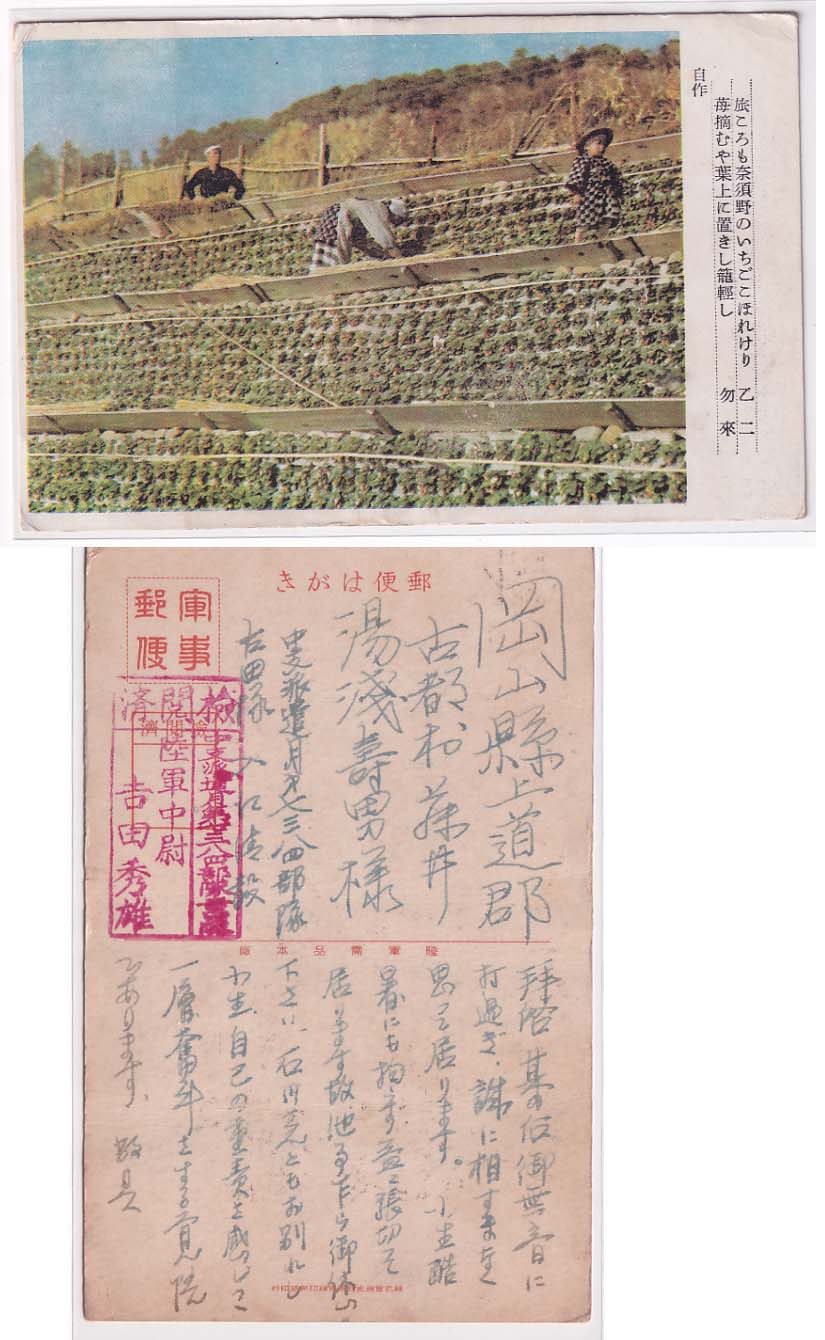 旅ころも奈須野のいちごこぼれけり 乙二
苺摘むや葉上に置きし籠輕し 勿來
自作
郵便はがき
軍事
郵便
岡山縣上道郡
古都村藤井
湯淺壽男樣
中支派遣月第七三八四部隊
吉田隊
檢
閲
濟
陸軍中尉
吉田秀雄
陸軍需品本廠
拜啓 其の后御無音に
打過ぎ、誠に相すまなく
思って居ります。小生酷
暑にも拘らず益々張切って
居ります故、他事乍ら御休心
下さい。石川君ともお別れし
小生、自己の重責を感じて
一層奮斗をする覚悟
であります、 敬具